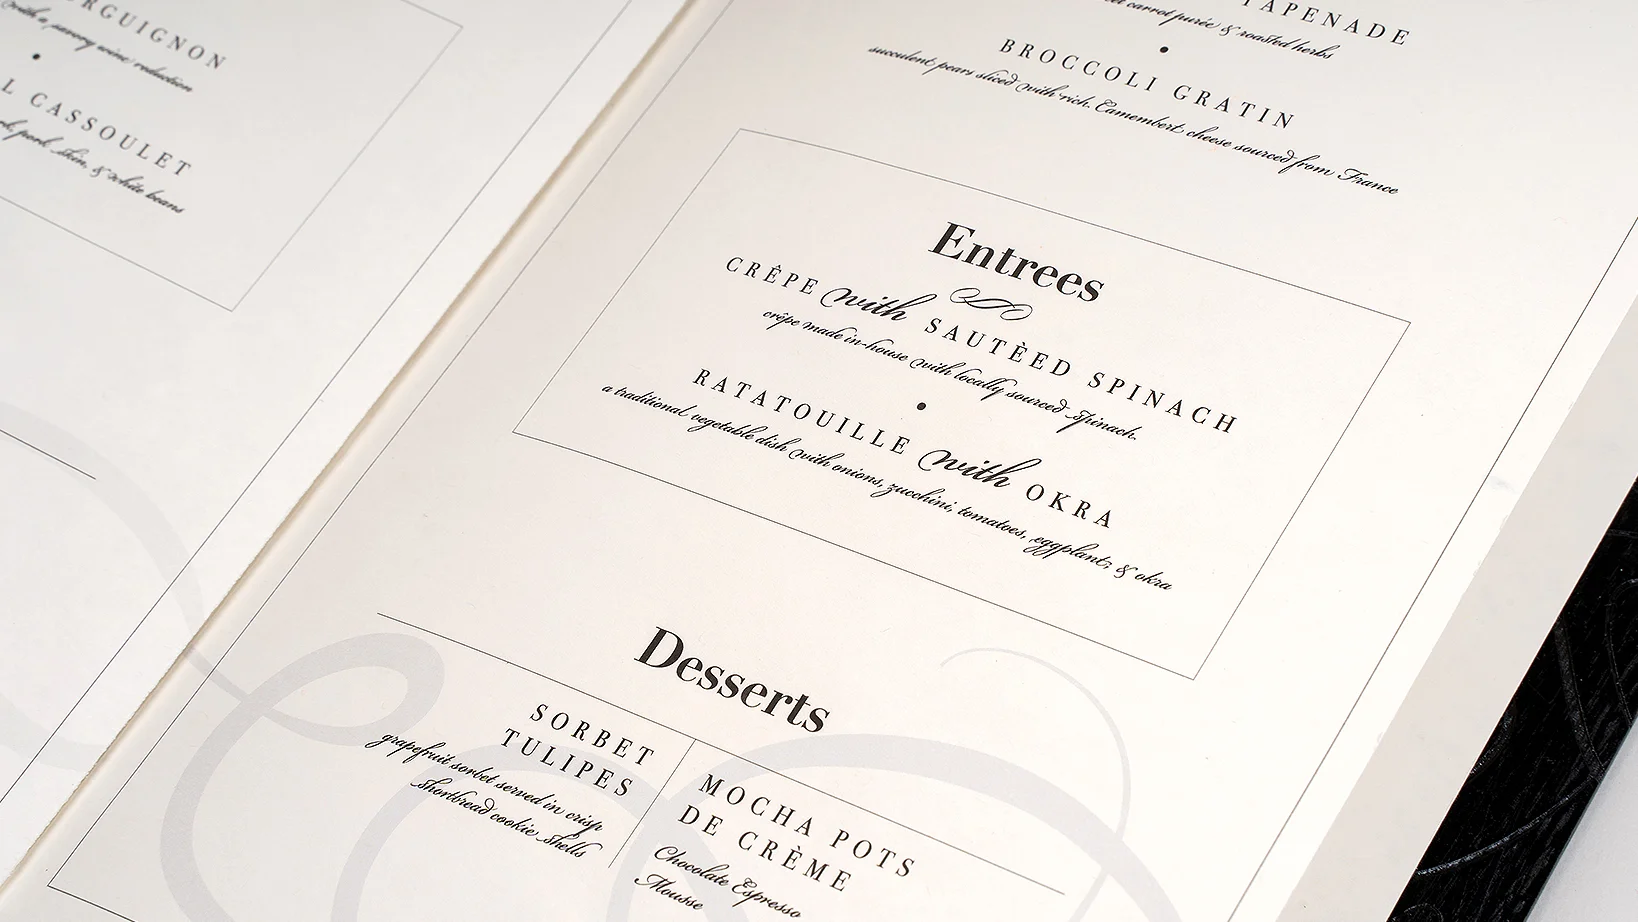 with a savory wine reduction
CASSOULET
pork, skin, & white beans
TAPENADE
carrot purée & roasted herbs
BROCCOLI GRATIN
succulent pears sliced with rich Camembert cheese sourced from France
Entrees
CRÊPE with SAUTÈED SPINACH
crêpe made in-house with locally sourced spinach.
RATATOUILLE with OKRA
a traditional vegetable dish with onions, zucchini, tomatoes, eggplant, & okra
Desserts
SORBET
TULIPES
grapefruit sorbet served in crisp
shortbread cookie shells
MOCHA POTS
DE CRÈME
Chocolate Espresso
Mousse